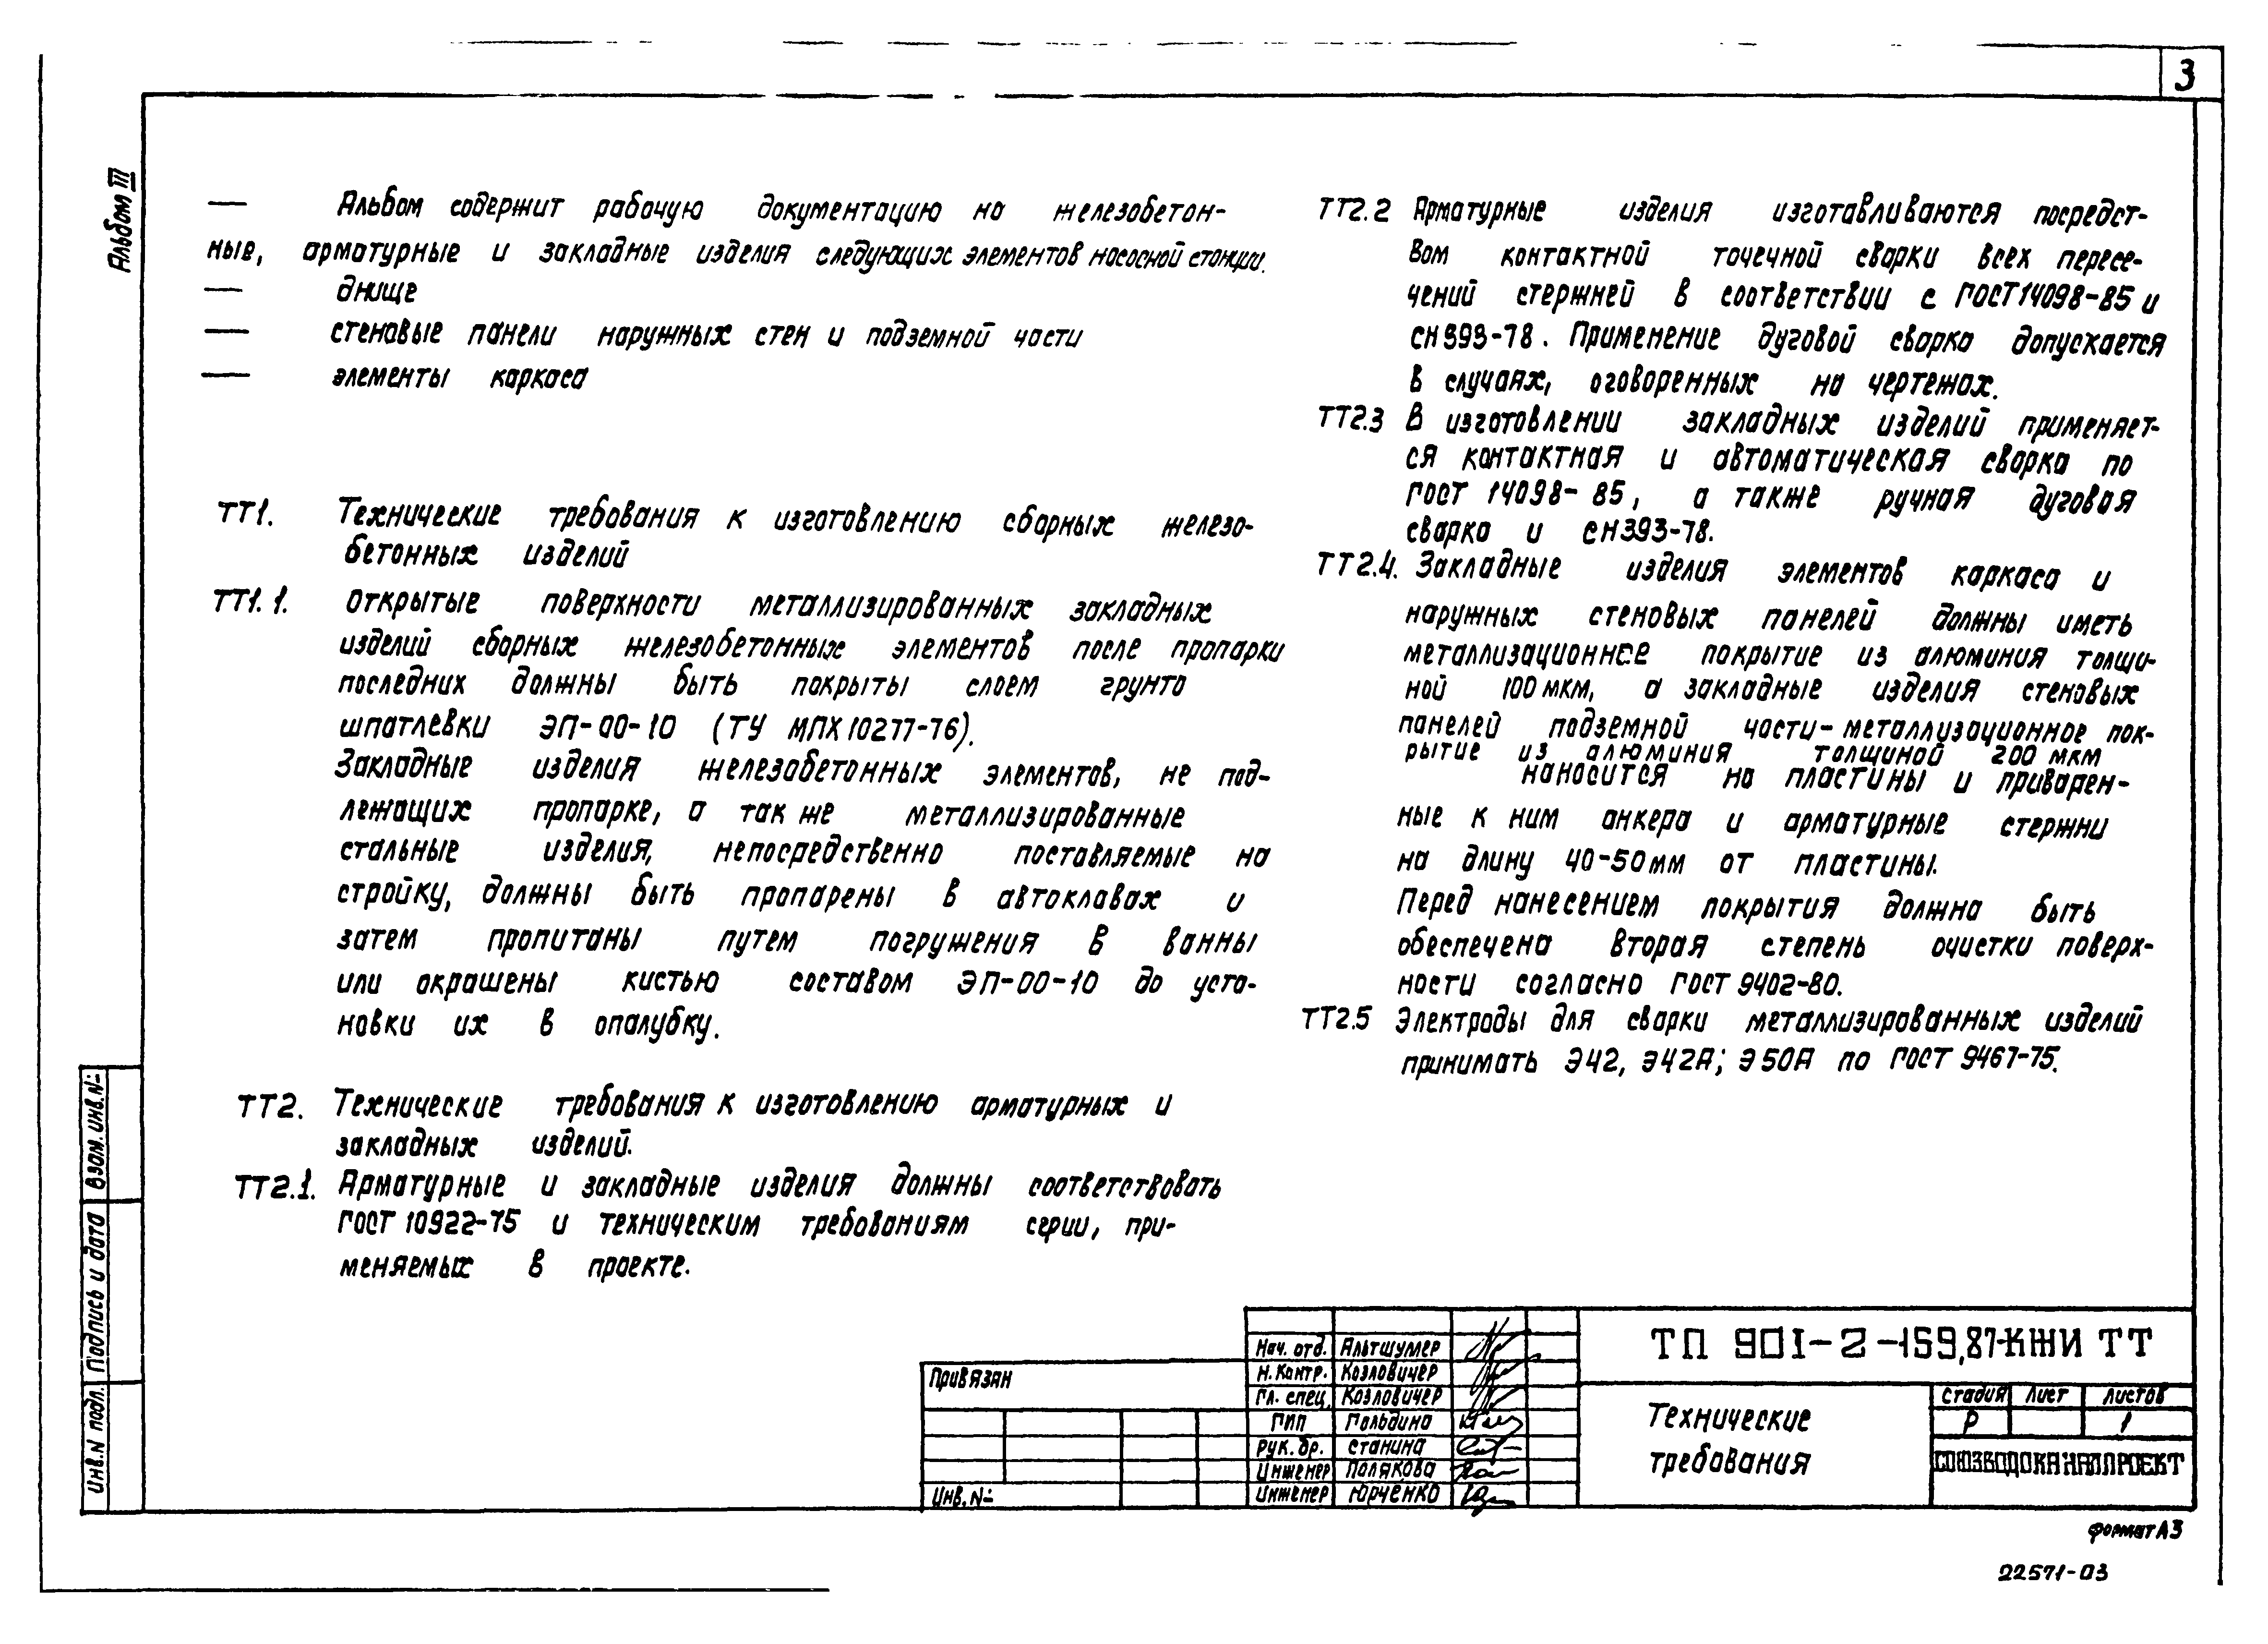 3
Альбом III
— Альбом содержит рабочую документацию на железобетон-
ные, арматурные и закладные изделия следующих элементов насосной станции.
— днище
— стеновые панели наружных стен и подземной части
— элементы каркаса
ТТ1. Технические требования к изготовлению сборных железо-
бетонных изделий
ТТ1.1. Открытые поверхности металлизированных закладных
изделий сборных железобетонных элементов после пропарки
последних должны быть покрыты слоем грунто
шпатлевки ЭП-00-10 (ТУ МПХ 10277-76).
Закладные изделия железобетонных элементов, не под-
лежащих пропарке, а так же металлизированные
стальные изделия, непосредственно поставляемые на
стройку, должны быть пропарены в автоклавах и
затем пропитаны путем погружения в ванны
или окрашены кистью составом ЭП-00-10 до уста-
новки их в опалубку.
ТТ2. Технические требования к изготовлению арматурных и
закладных изделий.
ТТ2.1. Арматурные и закладные изделия должны соответствовать
ГОСТ 10922-75 и техническим требованиям серии, при-
меняемых в проекте.
ТТ2.2 Арматурные изделия изготавливаются посредст-
вом контактной точечной сварки всех пересе-
чений стержней в соответствии с ГОСТ 14098-85 и
СН 393-78. Применение дуговой сварка допускается
в случаях, оговоренных на чертежах.
ТТ2.3 В изготовлении закладных изделий применяет-
ся контактная и автоматическая сварка по
ГОСТ 14098-85, а также ручная дуговая
сварка и СН 393-78.
ТТ2.4. Закладные изделия элементов каркаса и
наружных стеновых панелей должны иметь
металлизационное покрытие из алюминия толщи-
ной 100 мкм, а закладные изделия стеновых
панелей подземной части-металлизационное пок-
рытие из алюминия толщиной 200 мкм
наносится на пластины и приварен-
ные к ним анкера и арматурные стержни
на длину 40-50 мм от пластины.
Перед нанесением покрытия должна быть
обеспечена вторая степень очистки поверх-
ности согласно ГОСТ 9402-80.
ТТ2.5 Электроды для сварки металлизированных изделий
принимать Э42, Э42А; Э50А по ГОСТ 9467-75.
Взам. инв. №
Подпись и дата
Инв. N подл.
Привязан
Инв. №
Нач. отд. Альтшулер
Н. Контр. Козловичер
Гл. спец. Козловичер
ГИП Гольдина
Рук. бр. Станина
Инженер Полякова
Инженер Юрченко
ТП 901-2-159,87-КЖИ ТТ
Технические
требования
Стадия Лист Листов
Р 1
СОЮЗВОДОКАНАЛПРОЕКТ
формат А3
22571-03